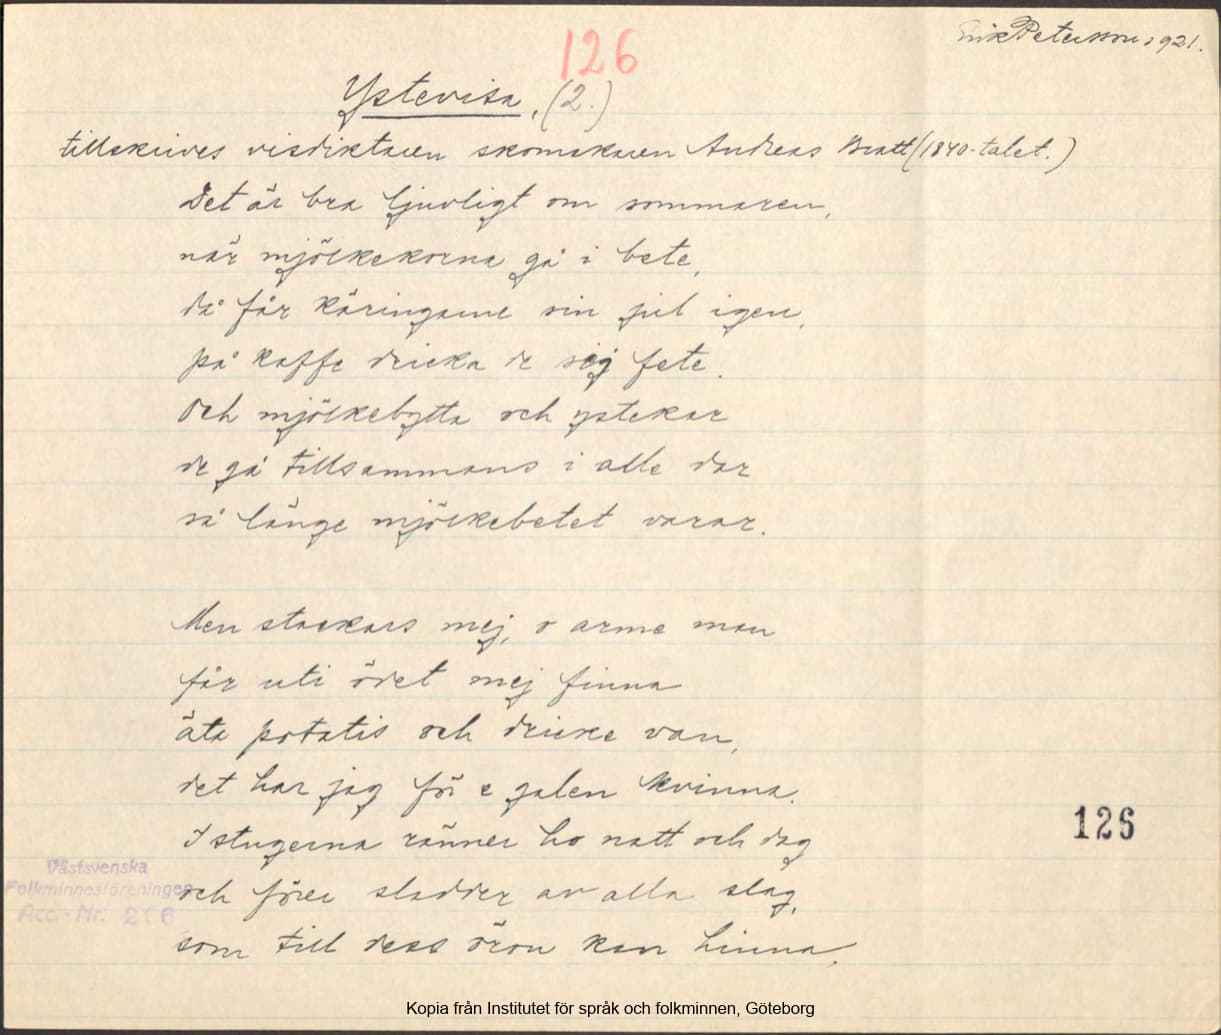 Erik Peterson 1921.
126
Ystevisa. (2.)
tillskrives visdiktaren skomakaren Andreas Bratt (1840-talet.)
Det är bra ljuvligt om sommaren,
när mjölkekorna gå i bete,
då får käringarne sin jul igen,
på kaffe dricka de sig fete.
Och mjölkebytta och ystekar
de gå tillsammans i alle dar
så länge mjölkebetet varar.
Men stackars mej, o arme man
får uti ödet mej finna
äta potatis och dricke van,
det har jag för e galen kvinna.
I stugerna ränner ho natt och dag
och förer sladder av alla slag,
som till dess öron kan hinna.
126
Västsvenska
Folkminnesföreningen
Acc.-Nr.
Kopia från Institutet för språk och folkminnen, Göteborg